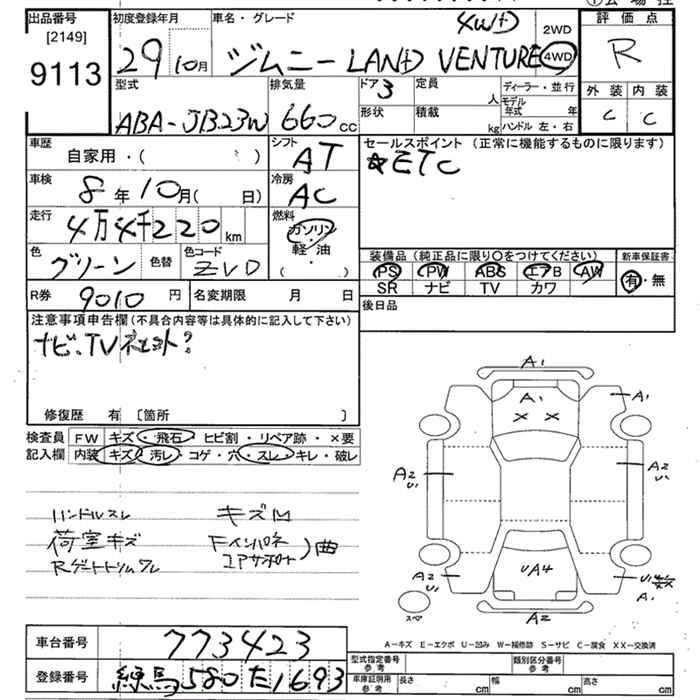 出品番号 [2149] 9113
初度登録年月 29 10月
車名・グレード 4WD ジムニー LAND VENTURE
2WD
4WD
評価点 R
外装 内装
C C
型式 ABA-JB23W
排気量 660 cc
ドア 3
形状
定員 人
積載 kg
ディーラー・並行
モデル年式 年
ハンドル 左・右
車歴 自家用・( )
シフト AT
セールスポイント (正常に機能するものに限ります)
★ETC
車検 8年10月( 日)
冷房 AC
走行 4万4千220 km
燃料 ガソリン・軽油 ( )
色 グリーン 色替
色コード ZVD
装備品 (純正品に限り〇をつけてください)
PS PW ABS エアB AW
SR ナビ TV カワ
新車保証書 有・無
R券 9010 円
名変期限 月 日
後日品
注意事項申告欄 (不具合内容等は具体的に記入して下さい)
修復歴 有 [箇所 ]
検査員記入欄
FW キズ・飛石・ヒビ割・リペア跡・×要
内装 キズ・汚レ・コゲ・穴・スレ・キレ・破レ
ハンドルスレ キズM
荷室キズ Fインパネ
コアサポート )曲
A1
A1
××
A1
A2 U1
A2 U1
A2 U1
UA4
A1
A2
スペ
A−キズ E−エクボ U−凹み W−補修跡 S−サビ C−腐食 XX−交換済
車台番号 773423
登録番号 練馬580た1693
型式指定番号 参考
類別区分番号 参考
車庫証明用 参考
長さ cm 幅 cm 高さ cm